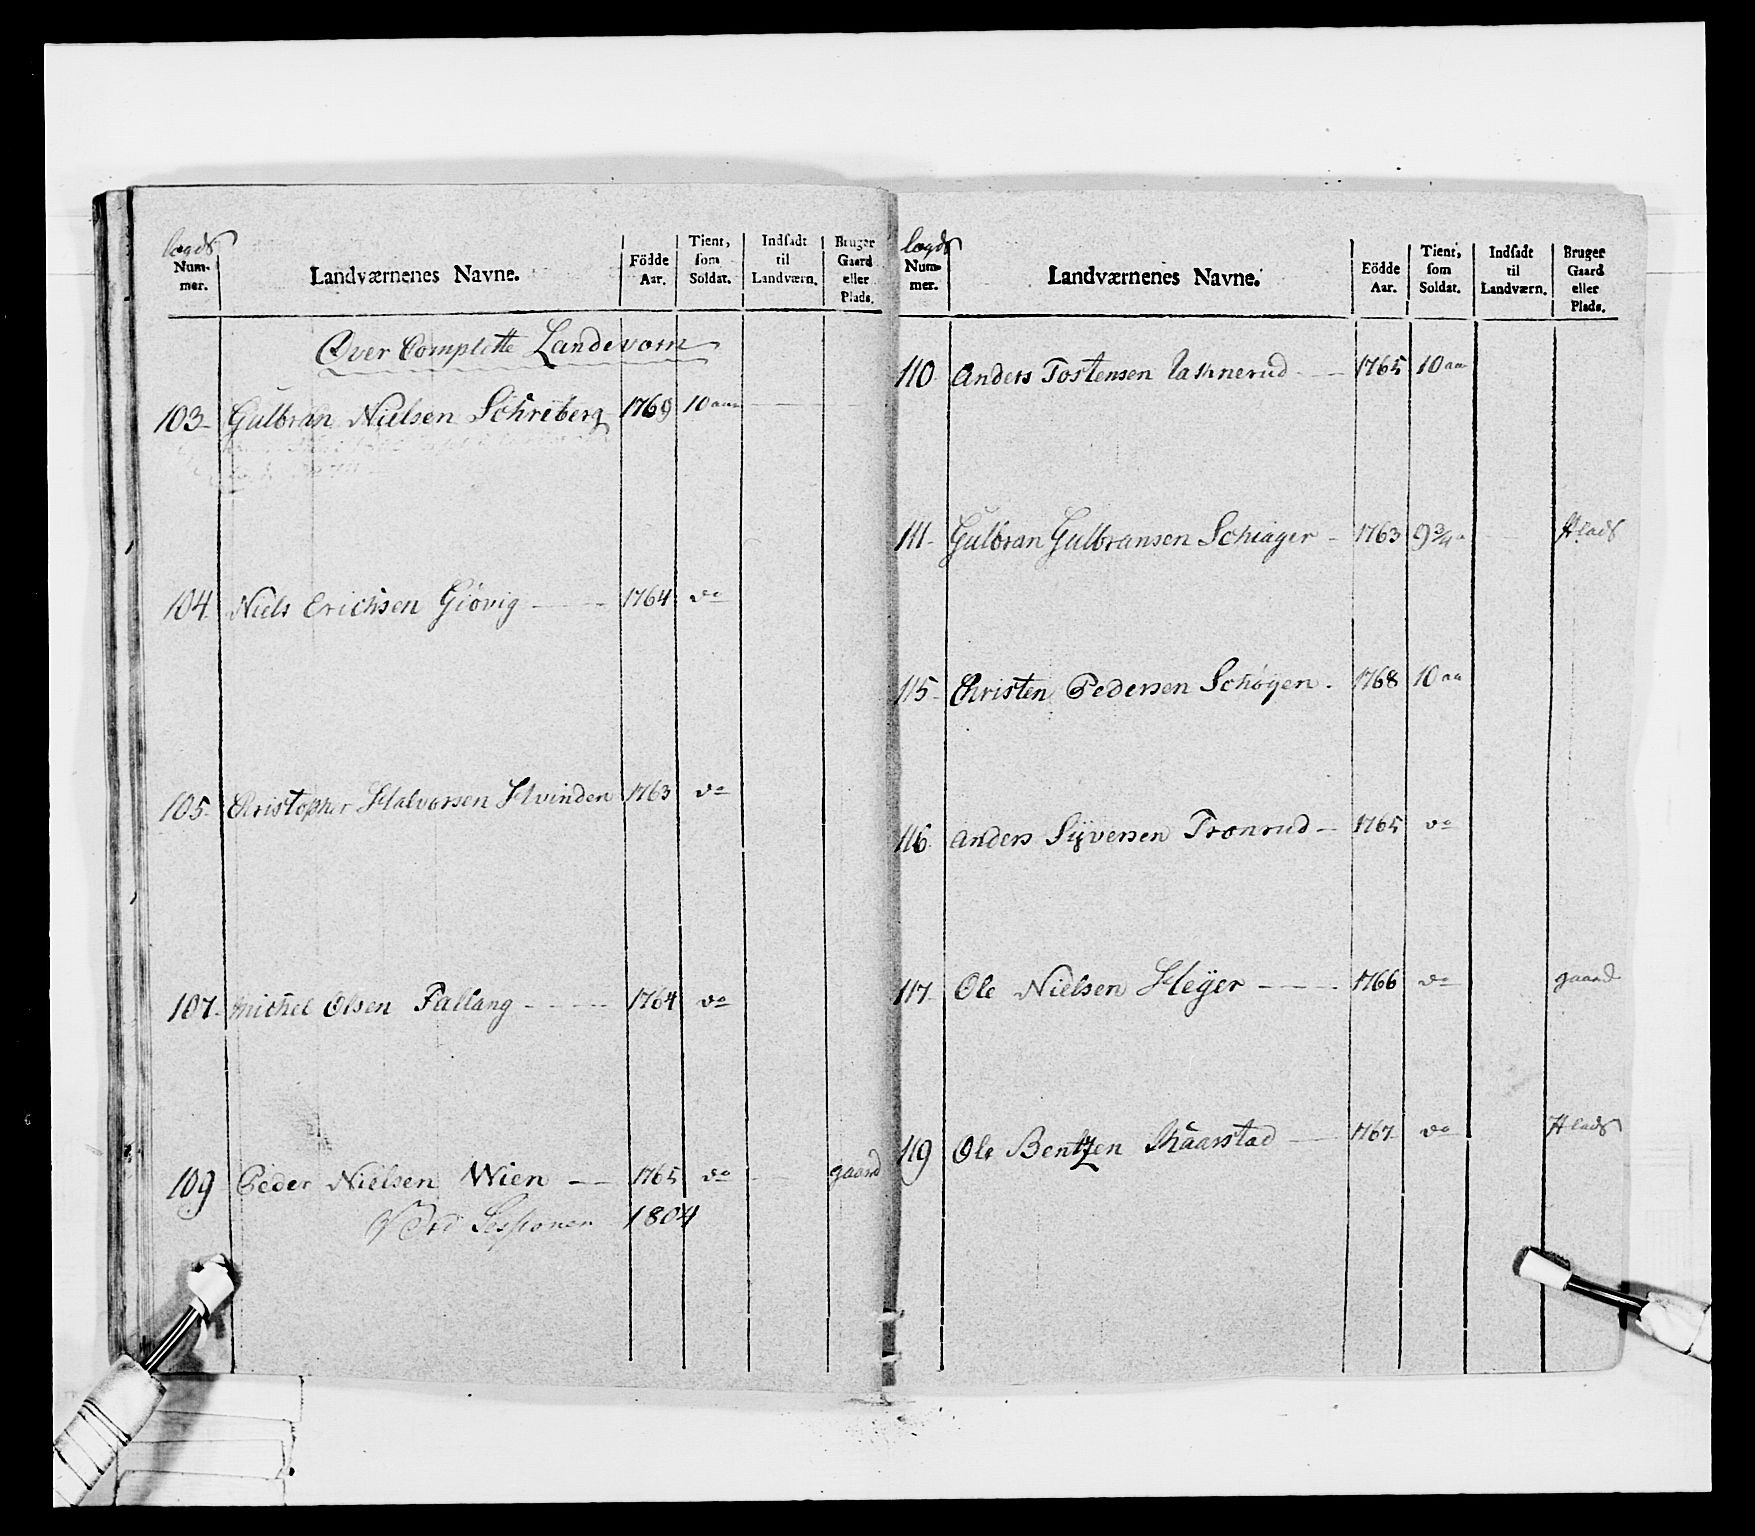 lægds
Num-
mer.
Landværnenes Navne.
Födde
Aar.
Tient,
som
Soldat.
Indsadt
til
Landværn.
Bruger
Gaard
eller
Plads.
Over Complette Landevorn
103 Gulbran Nielsen Schreberg 1769 10 aar
104 Niels Erichsen Giövig 1764 do
105 Christopher Halvorsen Hvinden 1763 do
107 Michel Olsen Fallang 1764 do
109 Peder Nielsen Wien 1765 do gaard
Ved Sessionen 1804
lægds
Num-
mer.
Landværnenes Navne.
Födde
Aar.
Tient,
som
Soldat.
Indsadt
til
Landværn.
Bruger
Gaard
eller
Plads.
110 Anders Tostensen 1765 10 aar
111 Gulbran Gulbransen Schiager 1763 9 3/4 Plads
115 Christen Pedersen Schögen 1768 10 aa
116 Anders Syversen Tronrud 1765 do
117 Ole Nielsen Heÿer 1766 do gaard
119 Ole Bentzen Skaarstad 1767 do Plads